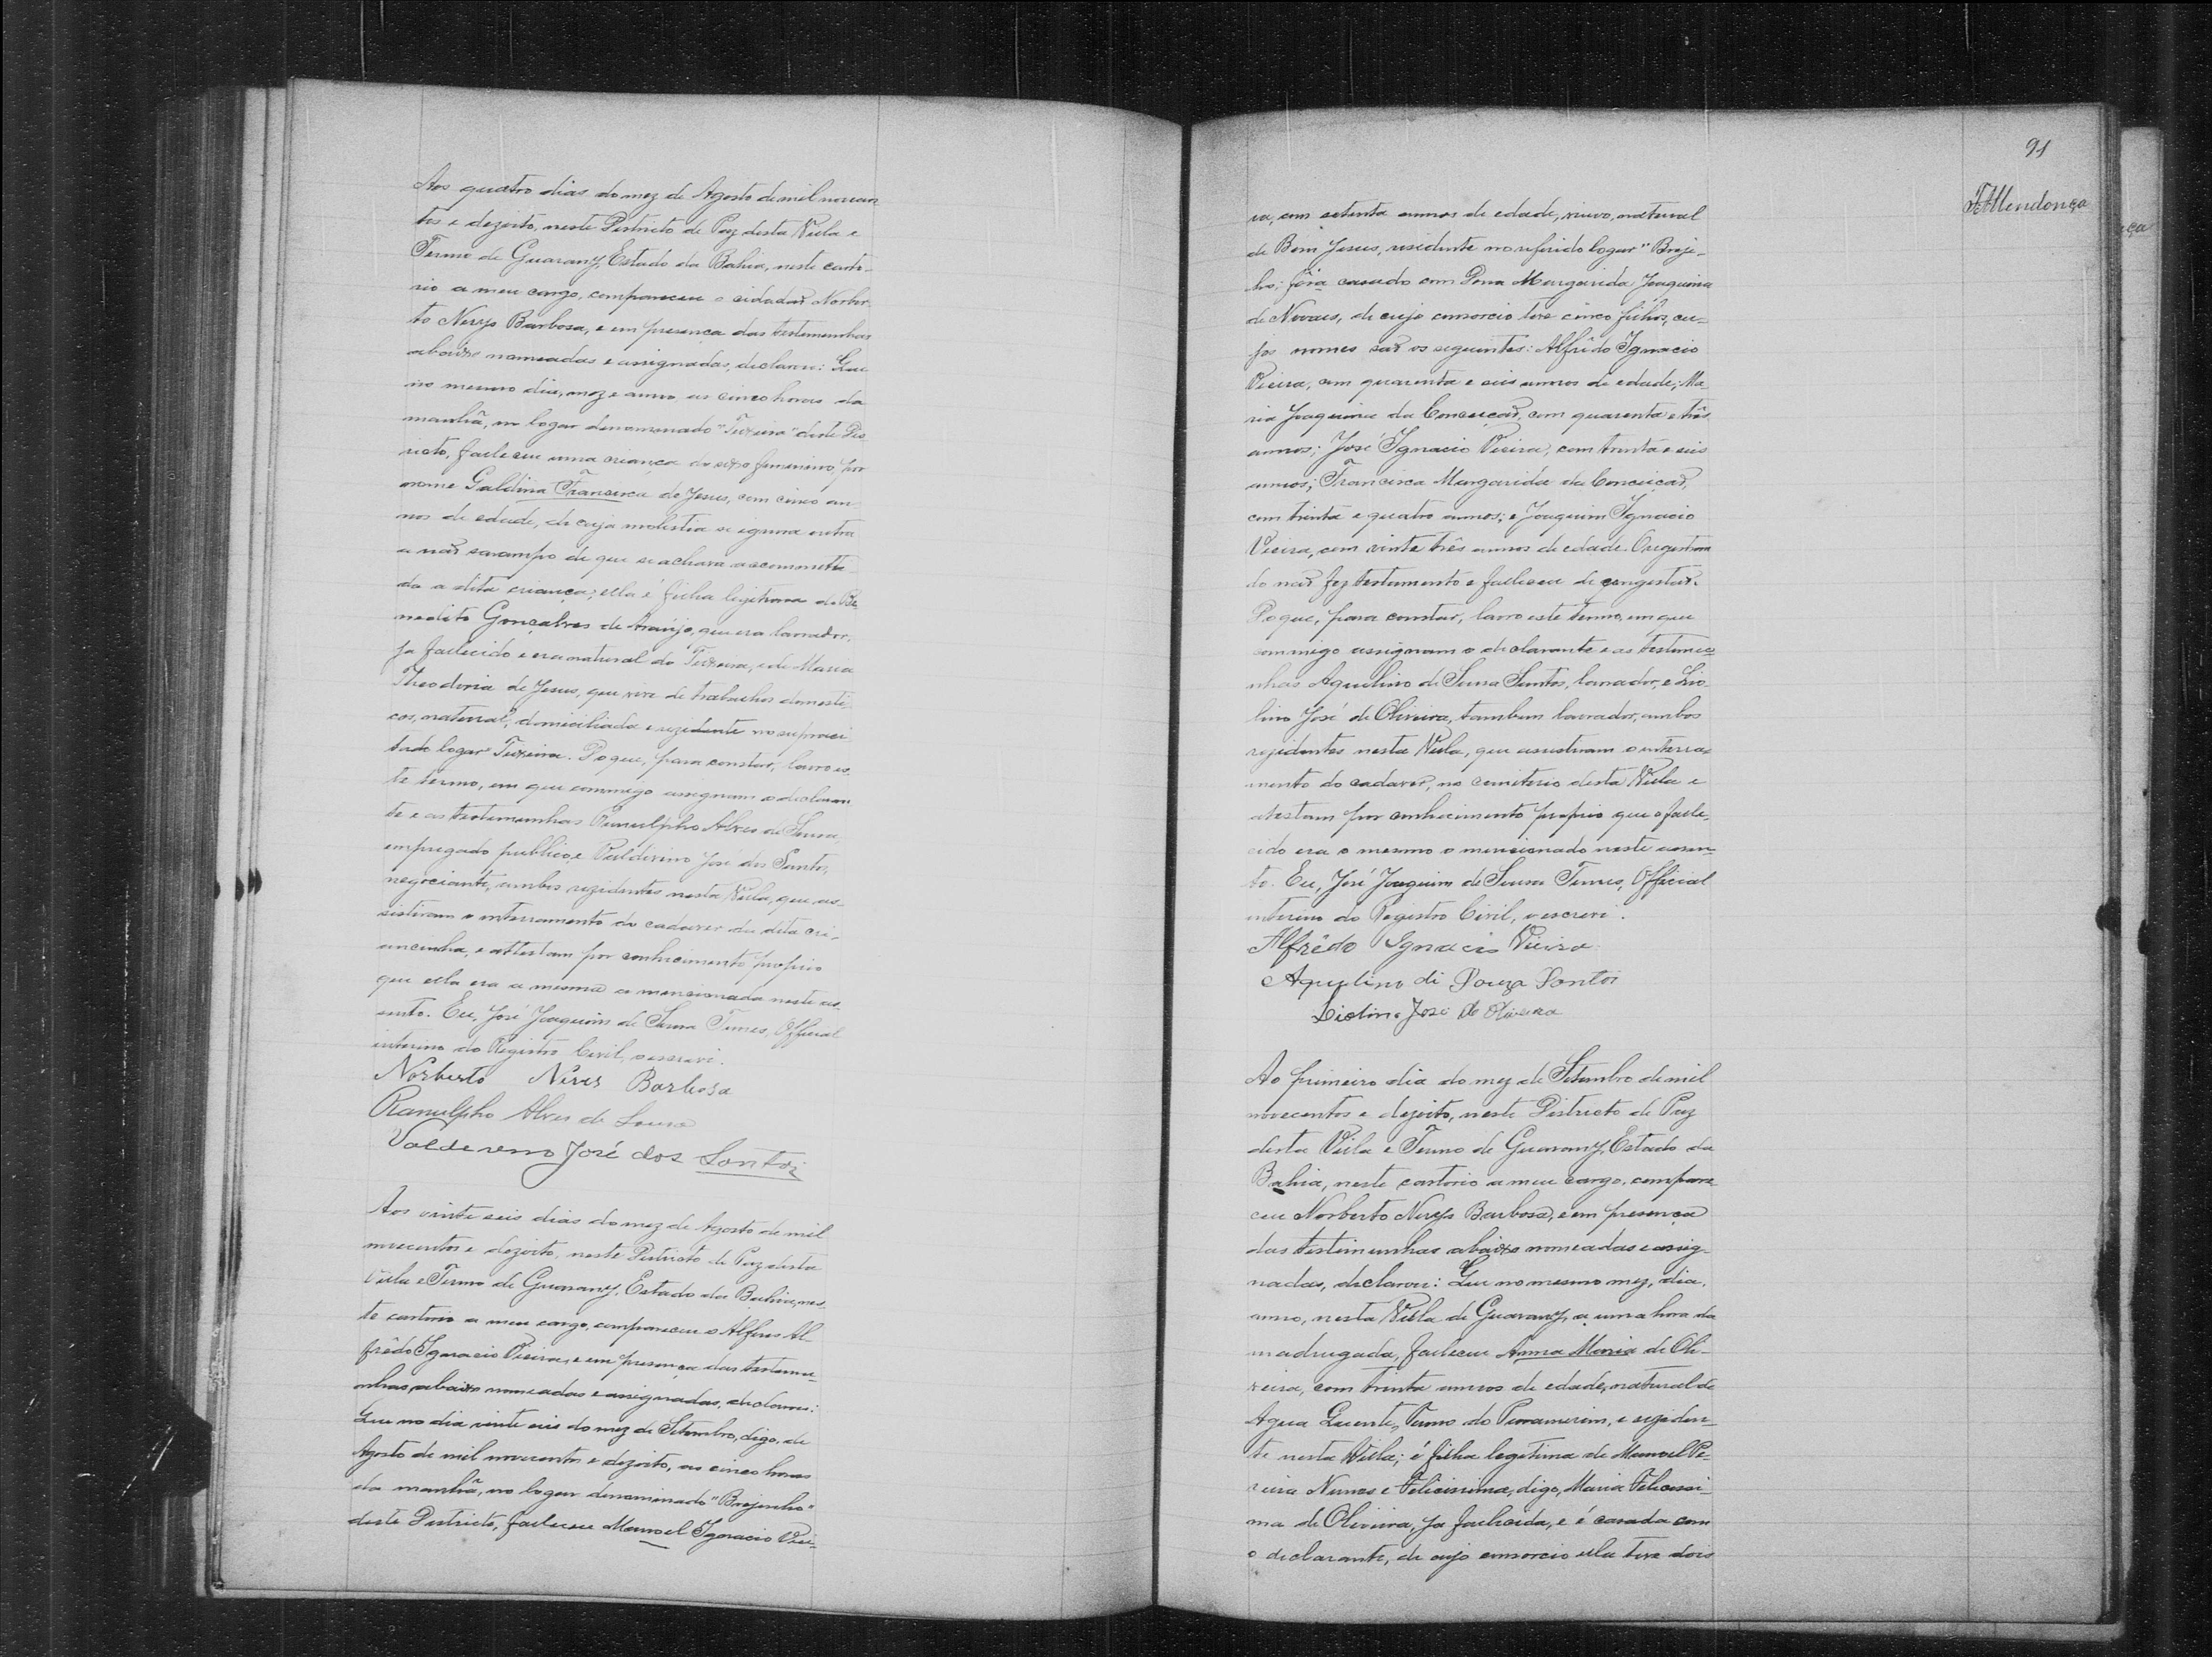 Aos quatro dias do mez de Agosto de mil novecen
tos e dezoito, neste Districto de Paz desta Villa e
Termo de Guarany, Estado da Bahia, neste carto-
rio a meu cargo, compareceu o cidadão Norber-
to Nerys Barbosa, e em presença das testemunhas
abaixo nomeadas e assignadas, declarou: Que
no mesmo dia, mez e anno, as cinco horas da
manhã, no logar denomenado "Teixeira" deste Dis-
tricto, falleceu uma criança do sexo femenino, por
nome Galdina Francisca de Jesus, com cinco an-
nos de edade, de cuja molestia se ignora outra
a não sarampo de que se achava accommetti
da a dita criança; ella é filha legitima de Be
nedito Gonçalves de Araújo, que era lavrador,
ja fallecido e era natural do Teixeira, e de Maria
Theodoria de Jesus, que vive de trabalhos domesti-
cos, natural, domiciliada e rezidente no supraci
tado logar Teixeira. Do que, para constar, lavro es-
te termo, em que commigo assignam o declaran
te e as testemunhas Ranulpho Alves de Sousa,
empregado publico, e Valdivino José dos Santos,
negociante, ambos rezidentes nesta Villa, que as-
sistiram o interramento do cadaver da dita cri-
ancinha, e attestam por conhecimento proprio
que ella era a mesma a mencionada neste as-
sento. Eu, José Joaquim de Sousa Tunes, Official
interino do Registro Civil, o escrevi.
Norberto Neres Barbosa
Ranulpho Alves de Sousa
Valdereno José dos Santos
Aos vinte seis dias do mez de Agosto de mil
novecentos e dezoito, neste Districto de Paz desta
Villa e Termo de Guarany, Estado da Bahia, nes-
te cartorio a meu cargo, compareceu o Alferes Al-
frêdo Ignacio Vieira, e em presença das testemu-
nhas abaixo nomeadas e assignadas, declarou:
Que no dia vinte seis do mez de Setembro, digo, de
Agosto de mil novecentos e dezoito, as cinco horas
da manhã, no logar denominado "Brejinho"
deste Districto, falleceu Manoel Ignacio Viei-
91
Mendonça
ra, com setenta annos de edade, viuvo, natural
de Bom Jesus, residente no referido logar "Breji-
nho; fôra casado com Dona Margarida Joaquina
de Novaes, de cujo consorcio teve cinco filhos, cu-
jos nomes são os seguintes: Alfrêdo Ignacio
Vieira, com quarenta e seis annos de edade; Ma
ria Joaquina da Conceição, com quarenta e três
annos; José Ignacio Vieira, com trinta e seis
annos; Francisca Margarida da Conceição,
com trinta e quatro annos; e Joaquim Ignacio
Vieira, com vinte três annos de edade. O registra
do não fez testamento e falleceu de congestão.
Do que, para constar, lavro este termo, em que
commigo assignam o declarante e as testemu
nhas Aquilino de Sousa Santos, lavrador, e Lio
lino José de Oliveira, tambem lavrador, ambos
rezidentes nesta Villa, que assistiram o interra-
mento do cadaver, no cemiterio desta Villa e
atestam por conhecimento proprio que o falle-
cido era o mesmo o mencionado neste assen-
to. Eu, José Joaquim de Sousa Tunes, Official
interino do Registro Civil, o escrevi.
Alfrêdo Ignacio Vieira
Aquilino di Souza Santos
Liolino José de Oliveira
Ao primeiro dia do mez de Setembro de mil
novecentos e dezoito, neste Districto de Paz
desta Villa e Termo de Guarany, Estado da
Bahia, neste cartorio a meu cargo, compare-
ceu Norberto Nerys Barbosa, e em presença
das testimunhas abaixo nomeadas e assig-
nadas, declarou: Que no mesmo mez, dia,
anno, nesta Villa de Guarany, a uma hora da
madrugada, falleceu Anna Maria de Oli-
veira, com trinta annos de edade, natural de
Agua Quente, Termo do Paramerim, e reziden-
te nesta Villa; é filha legitima de Manoel Pe-
reira Nunes e Felicissima, digo, Maria Felicissi-
ma de Oliveira, ja fallecida, e é casada com
o declarante, de cujo consorcio ella teve dois